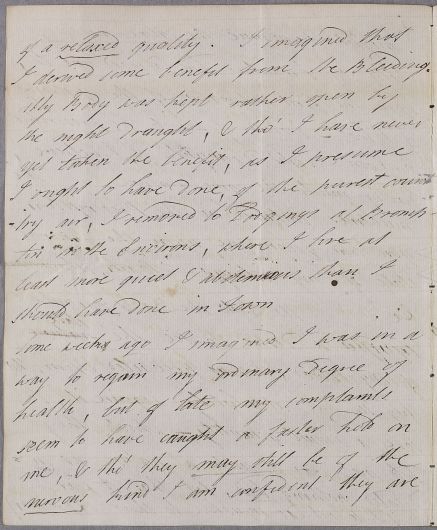 of a relaxed quality. I imagined that
I derived some benefit from the Bleeding.
My Body was kept rather open by
the night Draught, & tho' I have never
yet taken the benefit, as I presume
I ought to have done, of the purest coun
-try air, I removed to Lodgings at Bromp-
ton in the Environs, where I live at
least more quiet & abstemious than I
should have done in Town
some weeks ago I imagined I was in a
way to regain my ordinary Degree of
health, but of late my complaints
seem to have caught a faster hold on
me, & tho' they may still be of the
nervous kind I am confident they are